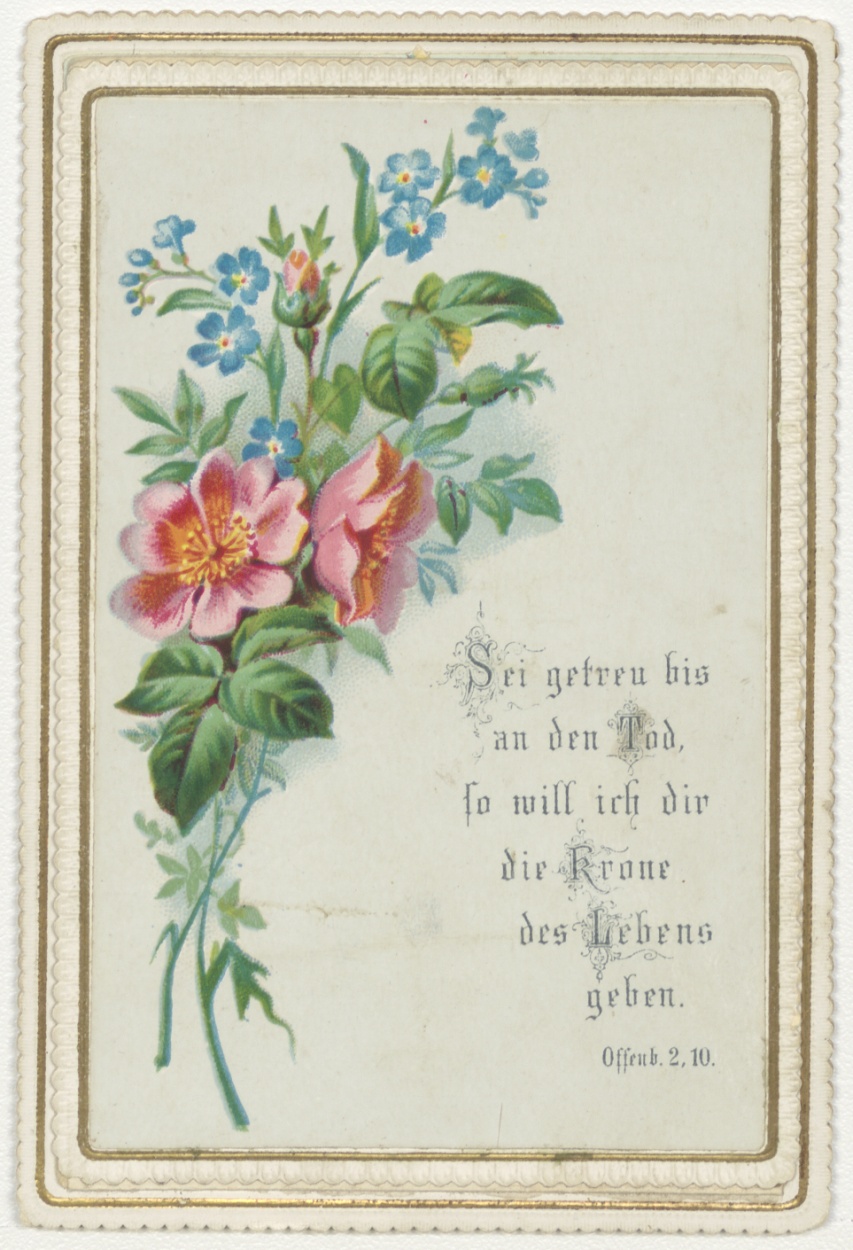 Sei getreu bis
an den Tod,
so will ich dir
die Krone
des Lebens
geben.
Offenb. 2, 10.